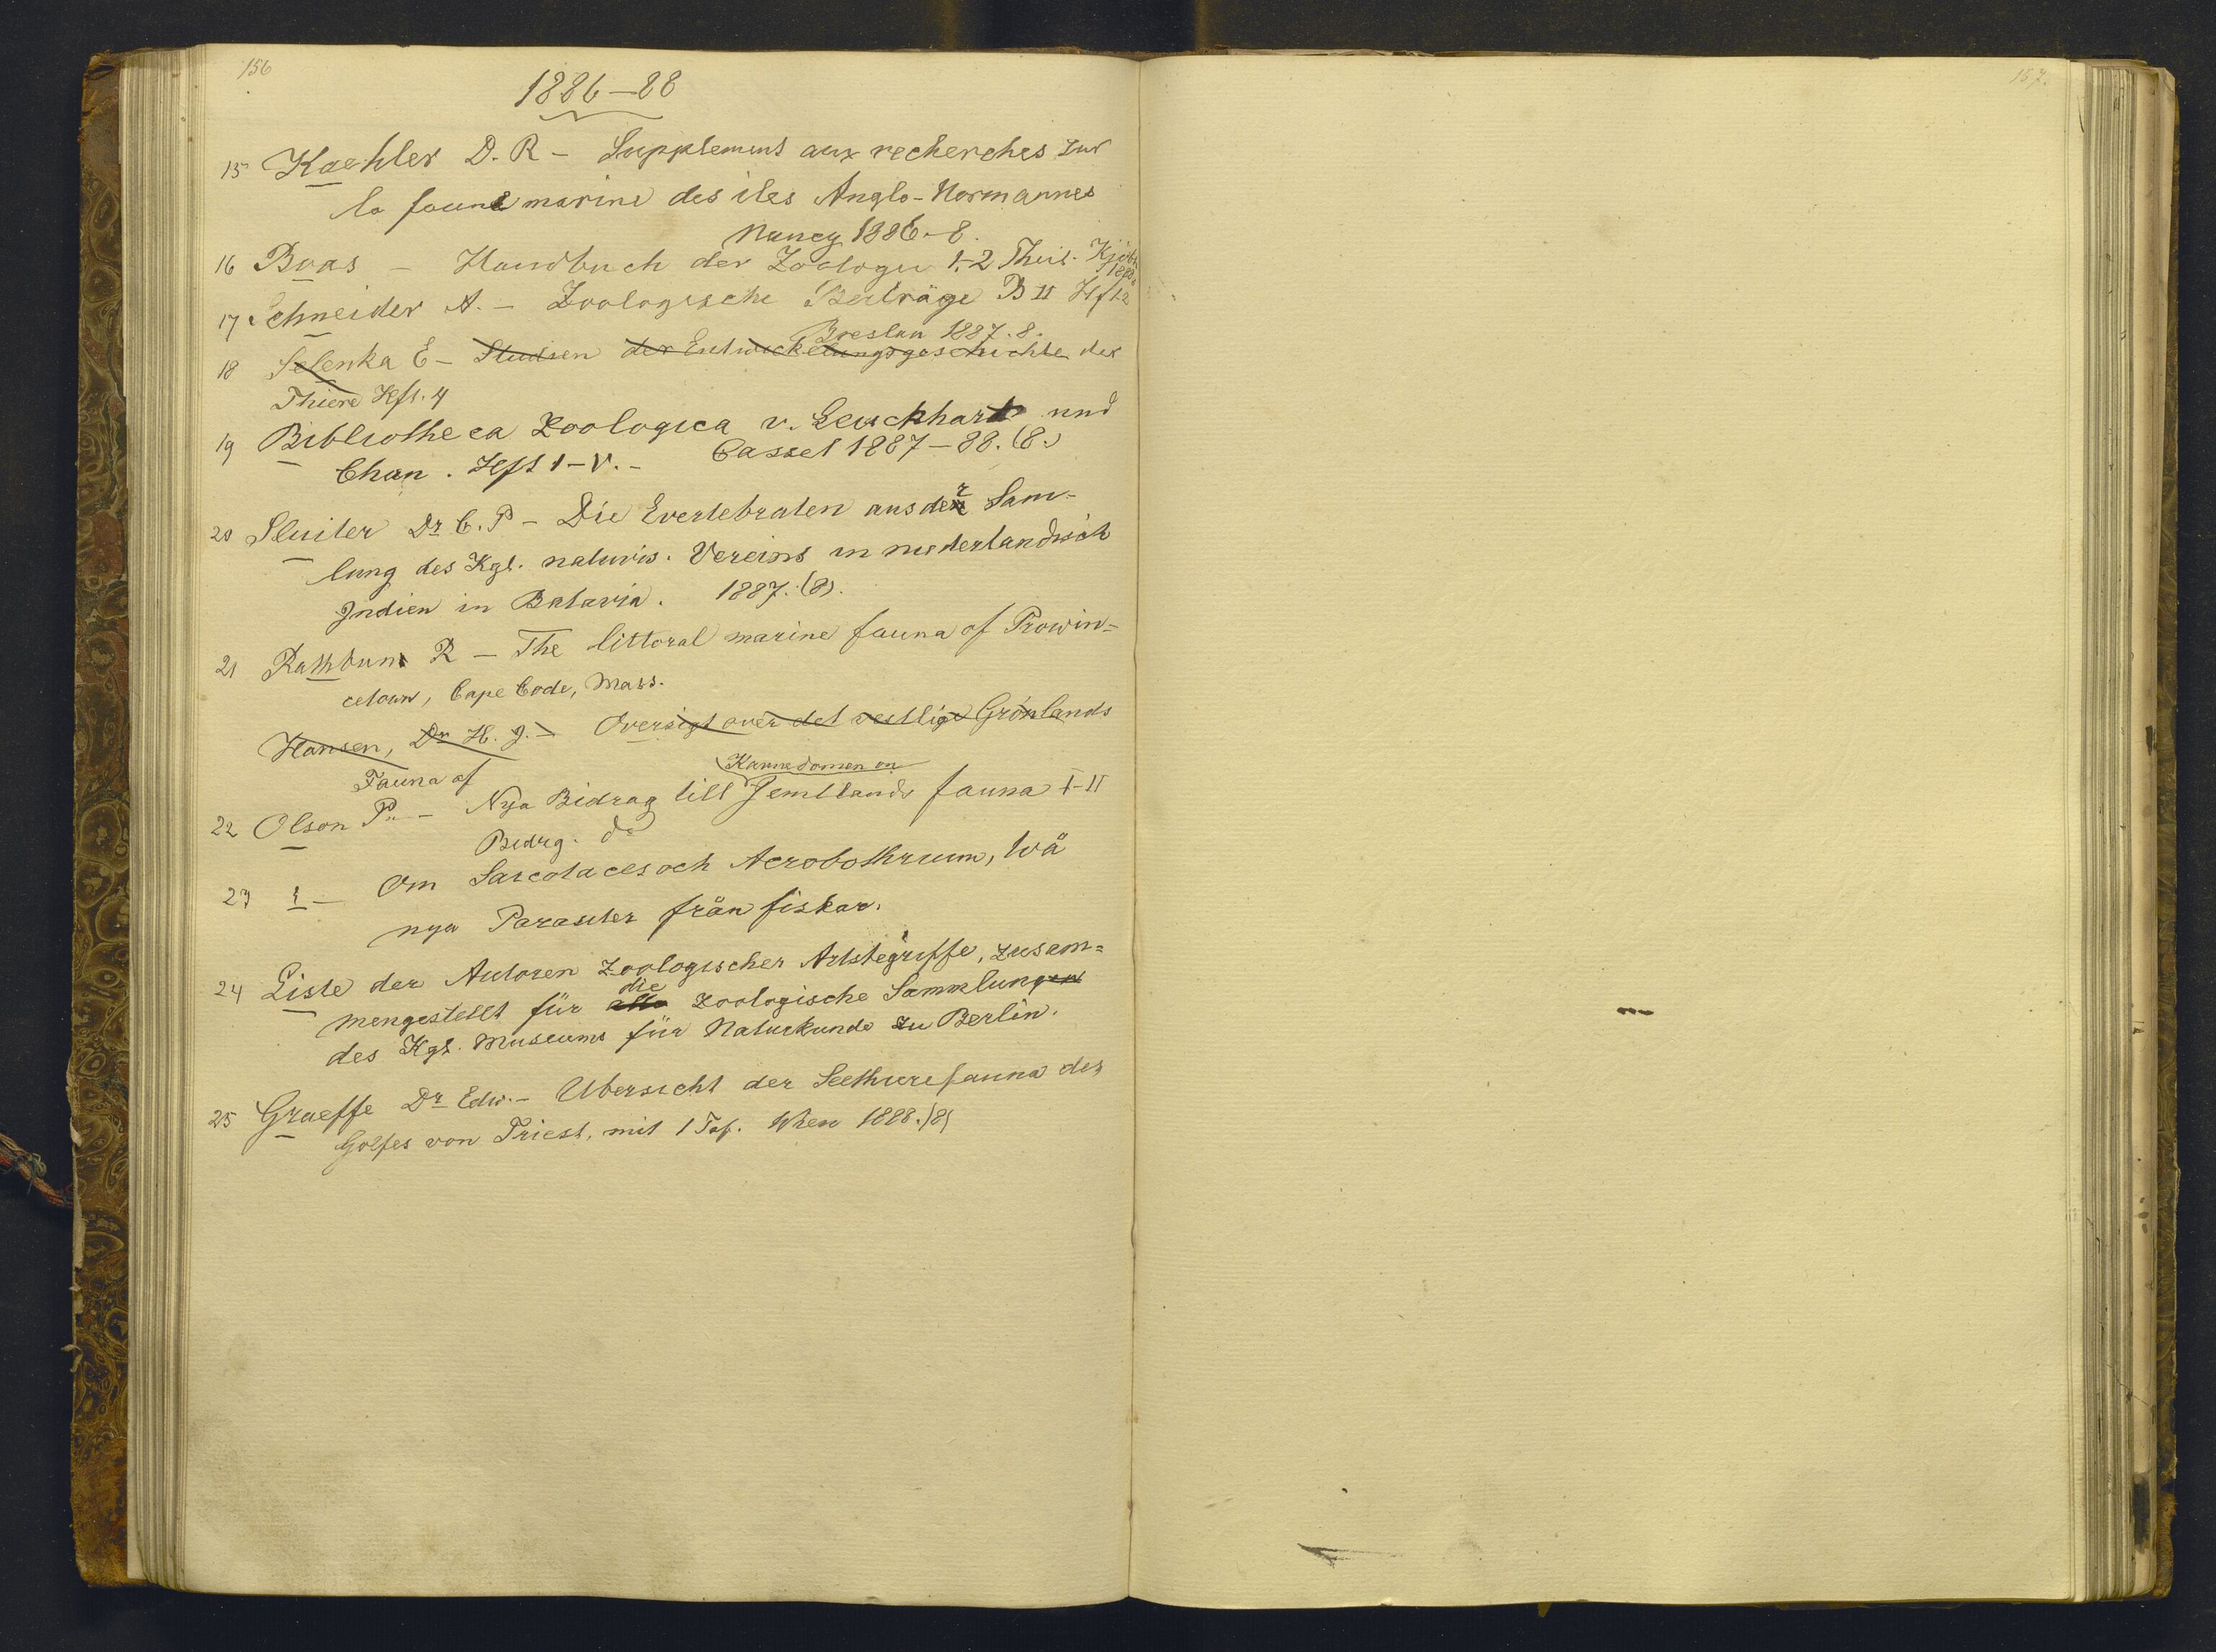 156
1886–88
15 Koehler D. R – Supplement aux recherches sur
la faune marine des iles Anglo-Normannes
Nancy 1886.–8.
16 Boas – Handbuch der Zoologie 1–2 Theil. Kjøbh
17 Schneider A. – Zoologische Beiträge B II Hft 2
Breslau 1887. 8.
18 Selenka E – Studien der Entwickelungsgeschichte der
Thiere Hft. 4
19 Bibliotheca Zoologica v. Leuckhart und
Chun. Heft 1–V. – Cassel 1887–88. (8.)
20 Sluiter Dr C. P – Die Evertebraten aus der Sam-
lung des Kgl. naturw. Vereins in nederlandsich
Indien in Batavia. 1887. (8).
21 Rathbun R – The littoral marine fauna of Prowin=
cetown, Cape Code, Mass.
Hansen, Dr H. J. – Oversigt over det vestlige Grönlands
Fauna af
Kännedomen om
22 Olson P. – Nya Bidrag till Jemtlands fauna I–II
Bidrg. do
23 – Om Sarcotaces och Acrobothrium, två
nya Parasiter från fiskar.
24 Liste der Autoren Zoologischer Artbegriffe, zusam=
mengestellt für die zoologische Sammlungen
des Kgl. Museums für Naturkunde zu Berlin.
25 Graeffe Dr Edw. – Ubersicht der Seethierefauna des
Golfes von Triest, mit 1 Taf. Wien 1888. (8)
157.